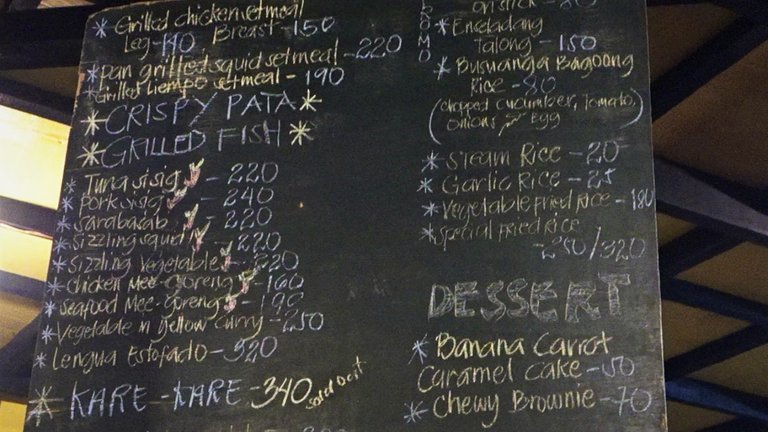 * Grilled chicken setmeal
Leg-140 Breast-150
*pan grilled squid setmeal-220
*Grilled Liempo setmeal-190
*CRISPY PATA*
*GRILLED FISH*
*Tuna sisig-220
*pork sisig-240
*sarabasab-220
*sizzling squid-220
*sizzling vegetable-220
*chicken Mee-Goreng-160
*seafood Mee-Goreng-190
*vegetable in yellow curry-250
*Lengua Estofado-320
*KARE-KARE-340 sold out
on stick-80
*Enseladang
Talong-150
*Busuanga Bagoong
Rice-80
(chopped cucumber, Tomato,
Onions Egg)
*STEAM RICE-20
*Garlic Rice-25
*vegetable fried rice-180
*special fried rice
-250/320
DESSERT
*Banana Carrot
Caramel Cake-50
*Chewy Brownie-70